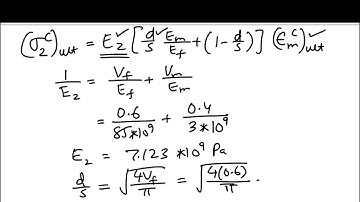 (σ₂ᶜ)ult = E₂ [ d/s Em/Ef + (1 - d/s) ] (εmᶜ)ult
1/E₂ = Vf/Ef + Vm/Em
= 0.6/(85*10⁹) + 0.4/(3*10⁹)
E₂ = 7.123 *10⁹ Pa
d/s = √(4Vf/π) = √(4(0.6)/π) .